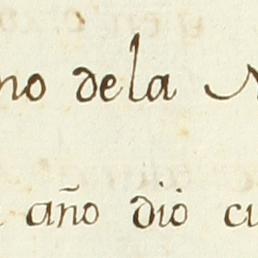 no dela
año dió cu